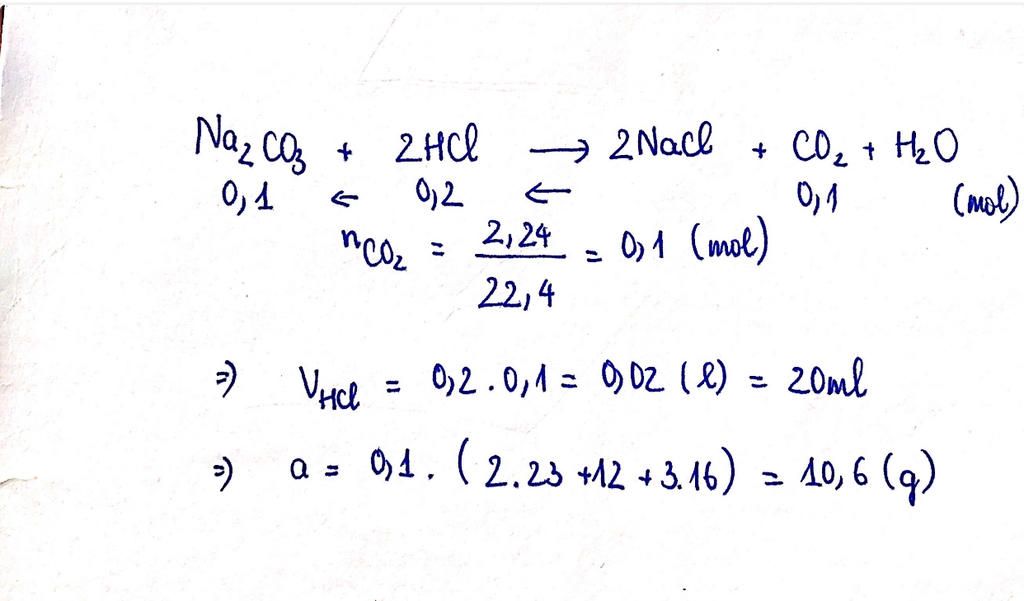 Na₂CO₃ + 2HCl → 2NaCl + CO₂ + H₂O
0,1 ← 0,2 ← 0,1 (mol)
nCO₂ = 2,24/22,4 = 0,1 (mol)
⇒ VHCl = 0,2.0,1 = 0,02 (l) = 20ml
⇒ a = 0,1.(2.23+12+3.16) = 10,6 (g)